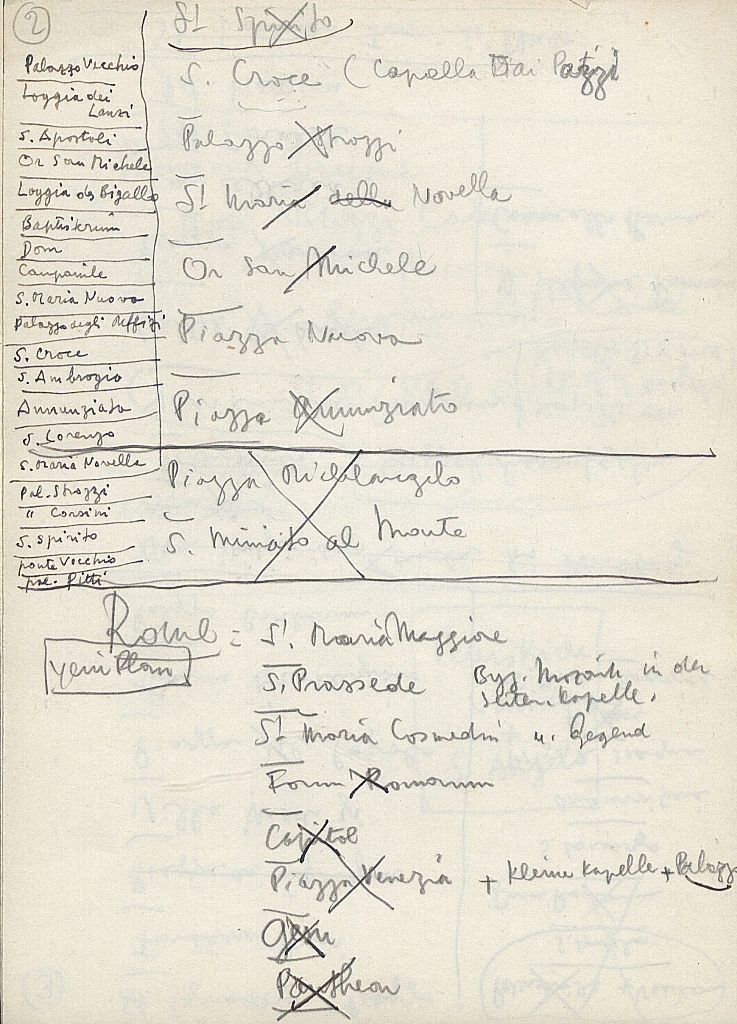 2
Palazzo Vecchio
Loggia dei
Lanzi
S. Apostoli
Or San Michele
Loggia de Bigallo
Baptisterium
Dom
Campanile
S. Maria Nuova
Palazzo degli Uffizi
S. Croce
S. Ambrogio
Annunziata
S. Lorenzo
S. Maria Novella
Pal. Strozzi
" Corsini
S. Spirito
ponte Vecchio
pal. Pitti
St Spirito
S. Croce (Capella Dai Pazzi
Palazzo Strozzi
St Maria della Novella
Or San Michele
Piazza Nuova
Piazza Annunziata
Piazza Michelangelo
S. Miniato al Monte
Rome = St. Maria Maggiore
S. Prassede Byz. Mozaik in der
Seitenkapelle.
St Maria Cosmedin u. Gegend
Forum Romanum
Capitol
Piazza Venezia + kleine Kapelle + Palazzo
Gesu
Pantheon